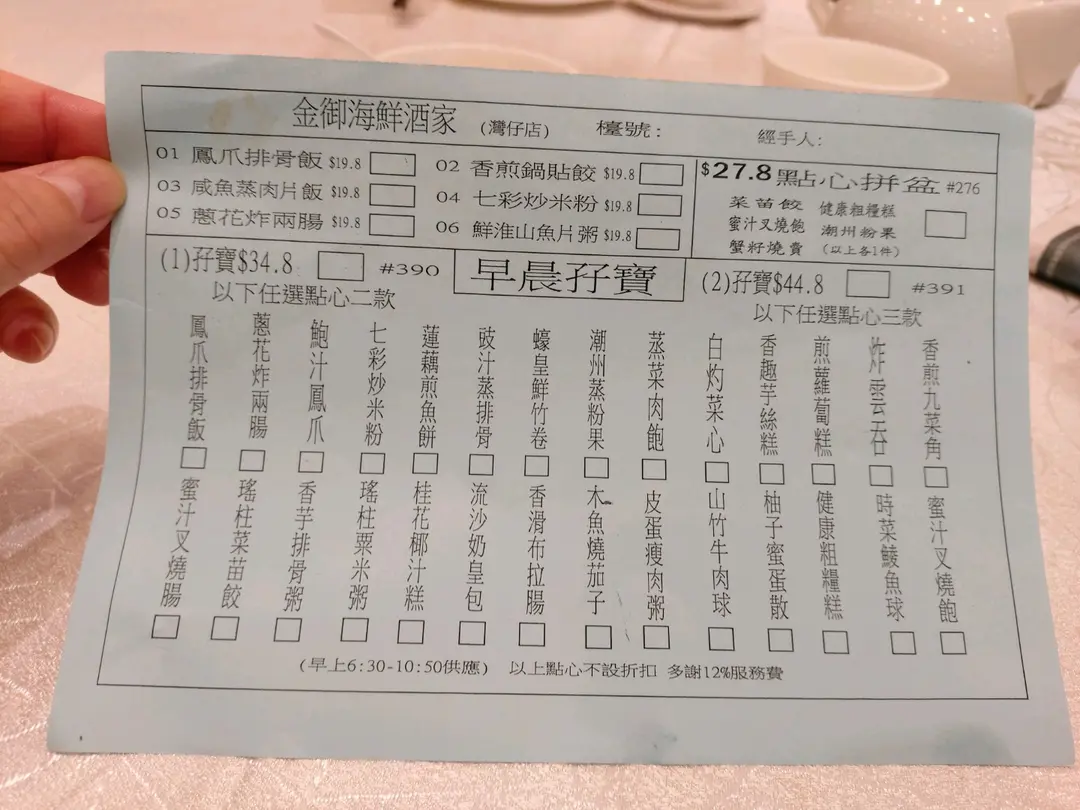 金御海鮮酒家 (灣仔店) 檯號: 經手人:
01 鳳爪排骨飯 $19.8 02 香煎鍋貼餃 $19.8
03 咸魚蒸肉片飯 $19.8 04 七彩炒米粉 $19.8
05 蔥花炸兩腸 $19.8 06 鮮淮山魚片粥 $19.8
$27.8點心拼盆 #276
菜苗餃 健康粗糧糕
蜜汁叉燒飽 潮州粉果
蟹籽燒賣 (以上各1件)
(1)孖寶$34.8 #390
以下任選點心二款
早晨孖寶
(2)孖寶$44.8 #391
以下任選點心三款
鳳爪排骨飯
蔥花炸兩腸
鮑汁鳳爪
七彩炒米粉
蓮藕煎魚餅
豉汁蒸排骨
蠔皇鮮竹卷
潮州蒸粉果
蒸菜肉飽
白灼菜心
香趣芋絲糕
煎蘿蔔糕
炸雲吞
香煎九菜角
蜜汁叉燒腸
瑤柱菜苗餃
香芋排骨粥
瑤柱粟米粥
桂花椰汁糕
流沙奶皇包
香滑布拉腸
木魚燒茄子
皮蛋瘦肉粥
山竹牛肉球
柚子蜜蛋散
健康粗糧糕
時菜鯪魚球
蜜汁叉燒飽
(早上6:30-10:50供應) 以上點心不設折扣 多謝12%服務費